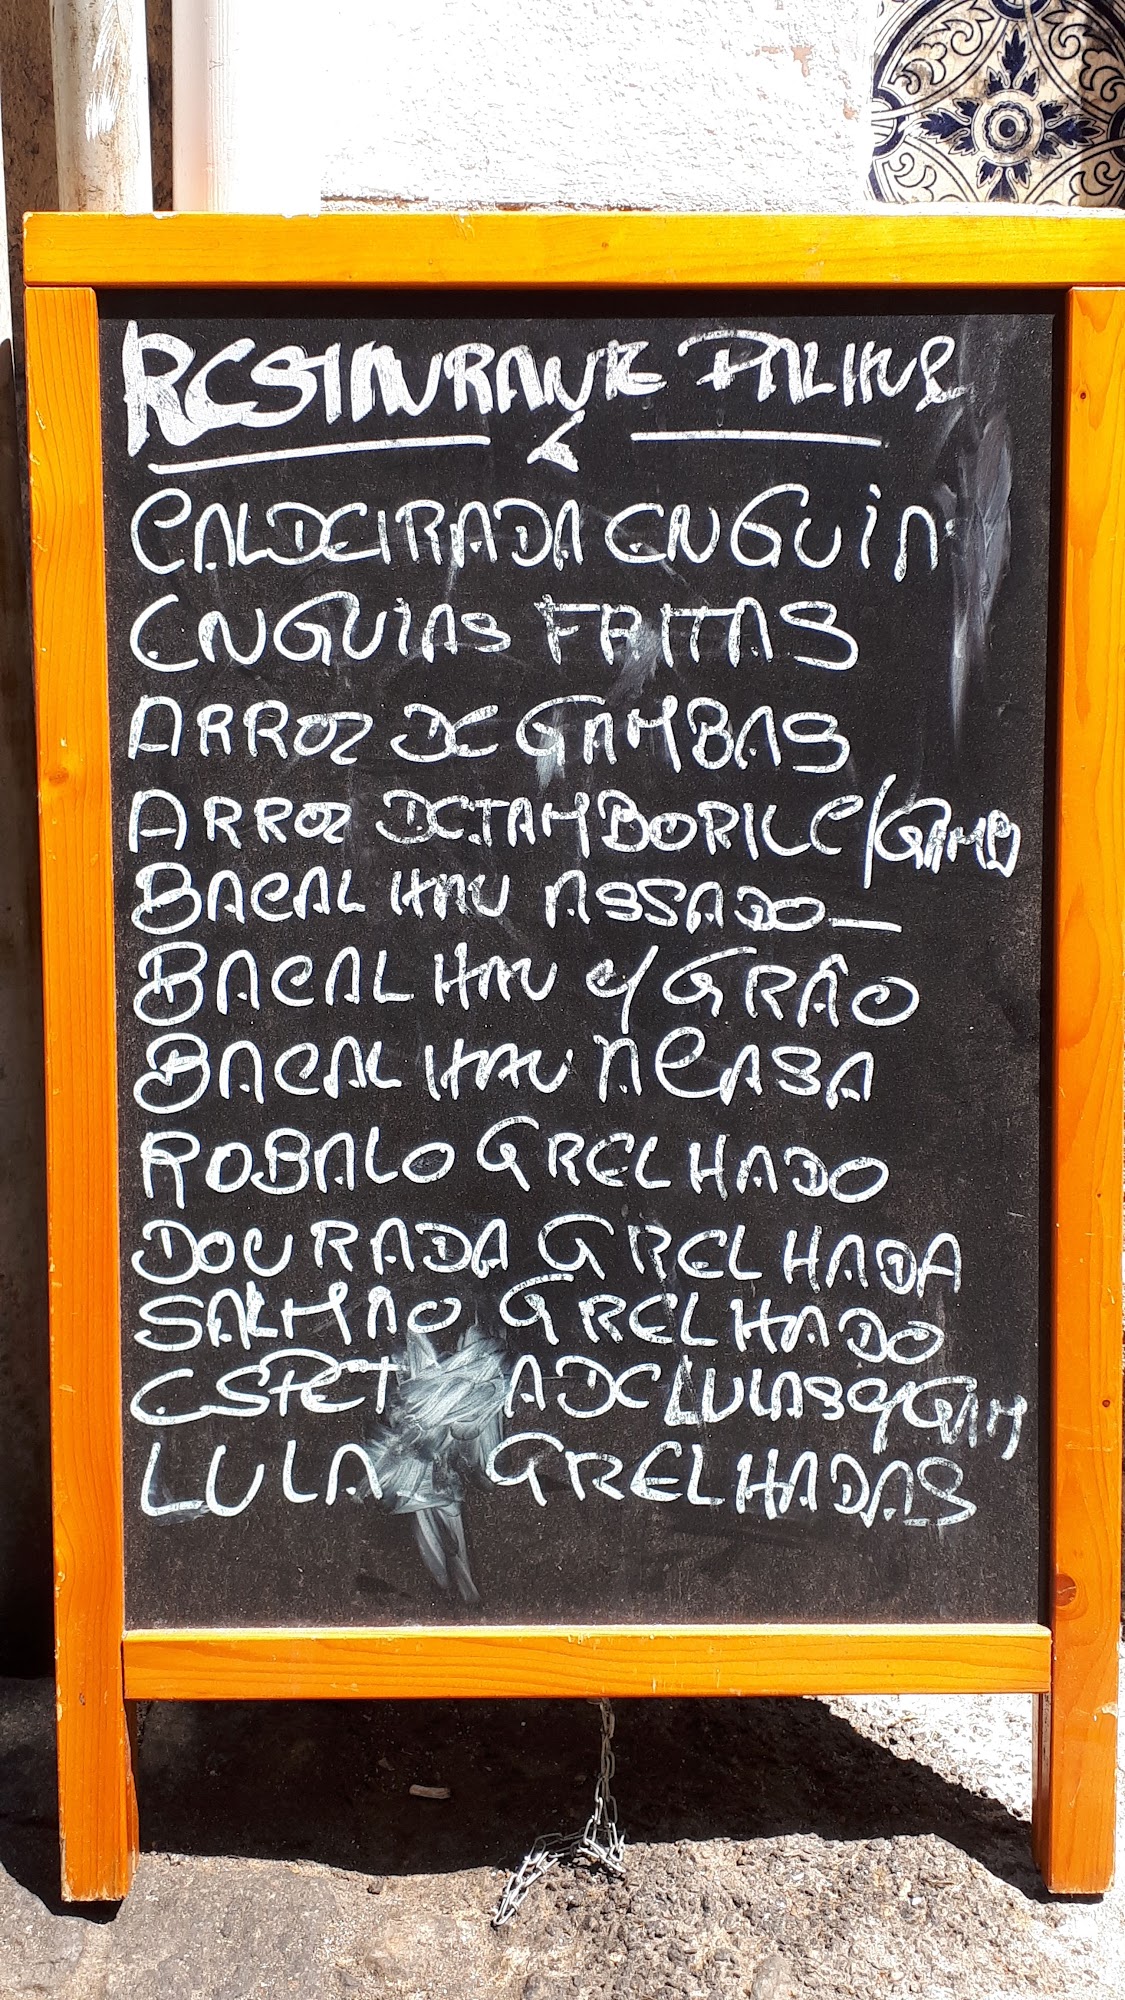 RESTAURANTE
CALDEIRADA ENGUIA
ENGUIAS FRITAS
ARROZ DE GAMBAS
ARROZ DE TAMBORIL C/GAMB
BACALHAU ASSADO
BACALHAU C/ GRÃO
BACALHAU À CASA
ROBALO GRELHADO
DOURADA GRELHADA
SALMÃO GRELHADO
ESPET A DE LULAS C/ GAM
LULA GRELHADAS